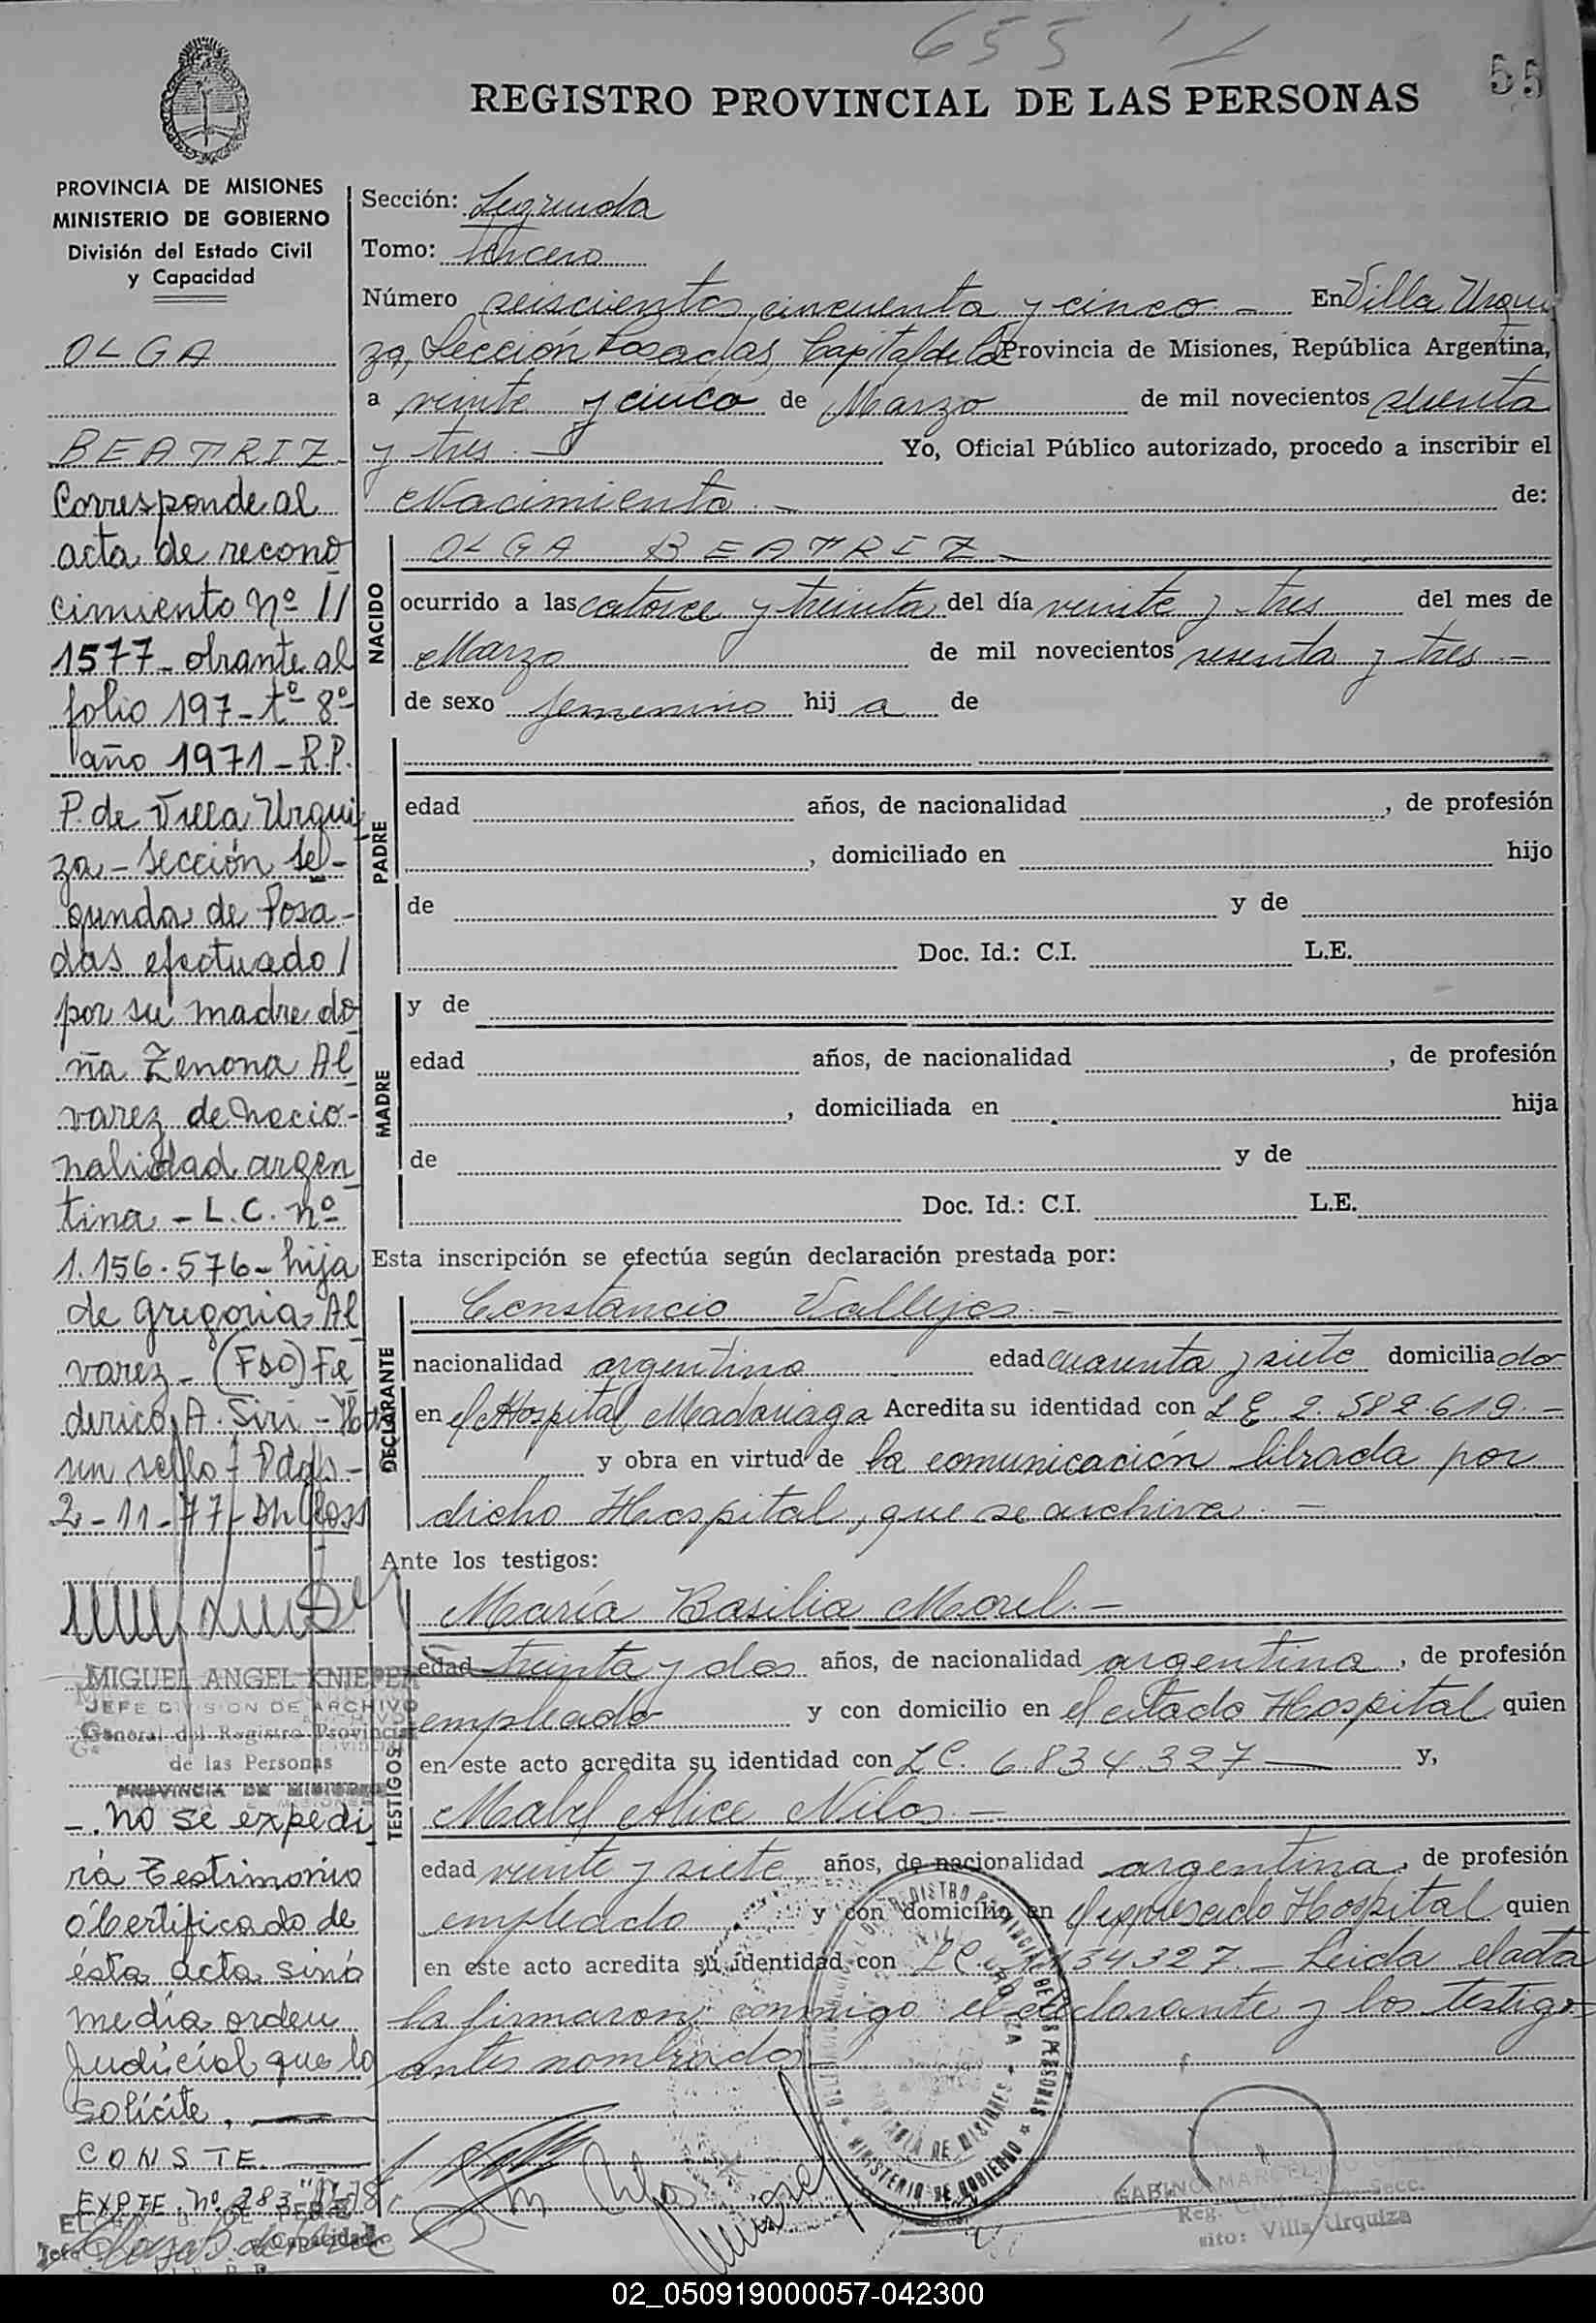 655
55
REGISTRO PROVINCIAL DE LAS PERSONAS
PROVINCIA DE MISIONES
MINISTERIO DE GOBIERNO
División del Estado Civil
y Capacidad
OLGA
BEATRIZ
Corresponde al
acta de recono
cimiento Nº //
1577 - obrante al
folio 197 - tº 8º
año 1971 - R.P.
P. de Villa Urqui
za - Sección Se-
gunda de Posa-
das efectuado /
por su madre do
ña Zenona Al
varez de nacio-
nalidad argen
tina - L.C. nº
1.156.576 - hija
de Gregoria Al
varez - (FDO) Fe
derico A. Siri - Hay
un sello - Pdas -
2-11-77-
MIGUEL ANGEL KNIEPER
JEFE DIVISION DE ARCHIVO
General del Registro Provincial
de las Personas
PROVINCIA DE MISIONES
-. No se expedi
rá testimonio
ó certificado de
ésta acta sinó
media orden
Judicial que lo
solicite,
CONSTE.
EXPTE. Nº 283
Sección: Segunda
Tomo: tercero
Número seiscientos cincuenta y cinco - En Villa Urqui
za, Sección Posadas, Capital de la Provincia de Misiones, República Argentina,
a veinte y cinco de Marzo de mil novecientos sesenta
y tres - Yo, Oficial Público autorizado, procedo a inscribir el
Nacimiento - de:
NACIDO
OLGA BEATRIZ -
ocurrido a las catorce y treinta del día veinte y tres del mes de
Marzo de mil novecientos sesenta y tres -
de sexo femenino hij a de
PADRE
edad años, de nacionalidad , de profesión
, domiciliado en hijo
de y de
Doc. Id.: C.I. L.E.
MADRE
y de
edad años, de nacionalidad , de profesión
, domiciliada en hija
de y de
Doc. Id.: C.I. L.E.
Esta inscripción se efectúa según declaración prestada por:
DECLARANTE
Constancio Vallejos -
nacionalidad argentina edad cuarenta y siete domiciliado
en el Hospital Madariaga Acredita su identidad con L E 2.582.619 -
y obra en virtud de la comunicación librada por
dicho Hospital, que se archiva -
Ante los testigos:
TESTIGOS
María Basilia Morel -
edad treinta y dos años, de nacionalidad argentina, de profesión
empleado y con domicilio en el citado Hospital quien
en este acto acredita su identidad con L C. 6.834.327 y,
Mabel Alice Nilos -
edad veinte y siete años, de nacionalidad argentina, de profesión
empleado y con domicilio en el expresado Hospital quien
en este acto acredita su identidad con L C. 34.327. - Leida el acta
la firmaron conmigo el declarante y los testigos
antes nombrados -
REGISTRO PROVINCIAL DE LAS PERSONAS
PROVINCIA DE MISIONES
MINISTERIO DE GOBIERNO
GABINO MARCELINO
Reg. Secc.
sito: Villa Urquiza
02_050919000057-042300